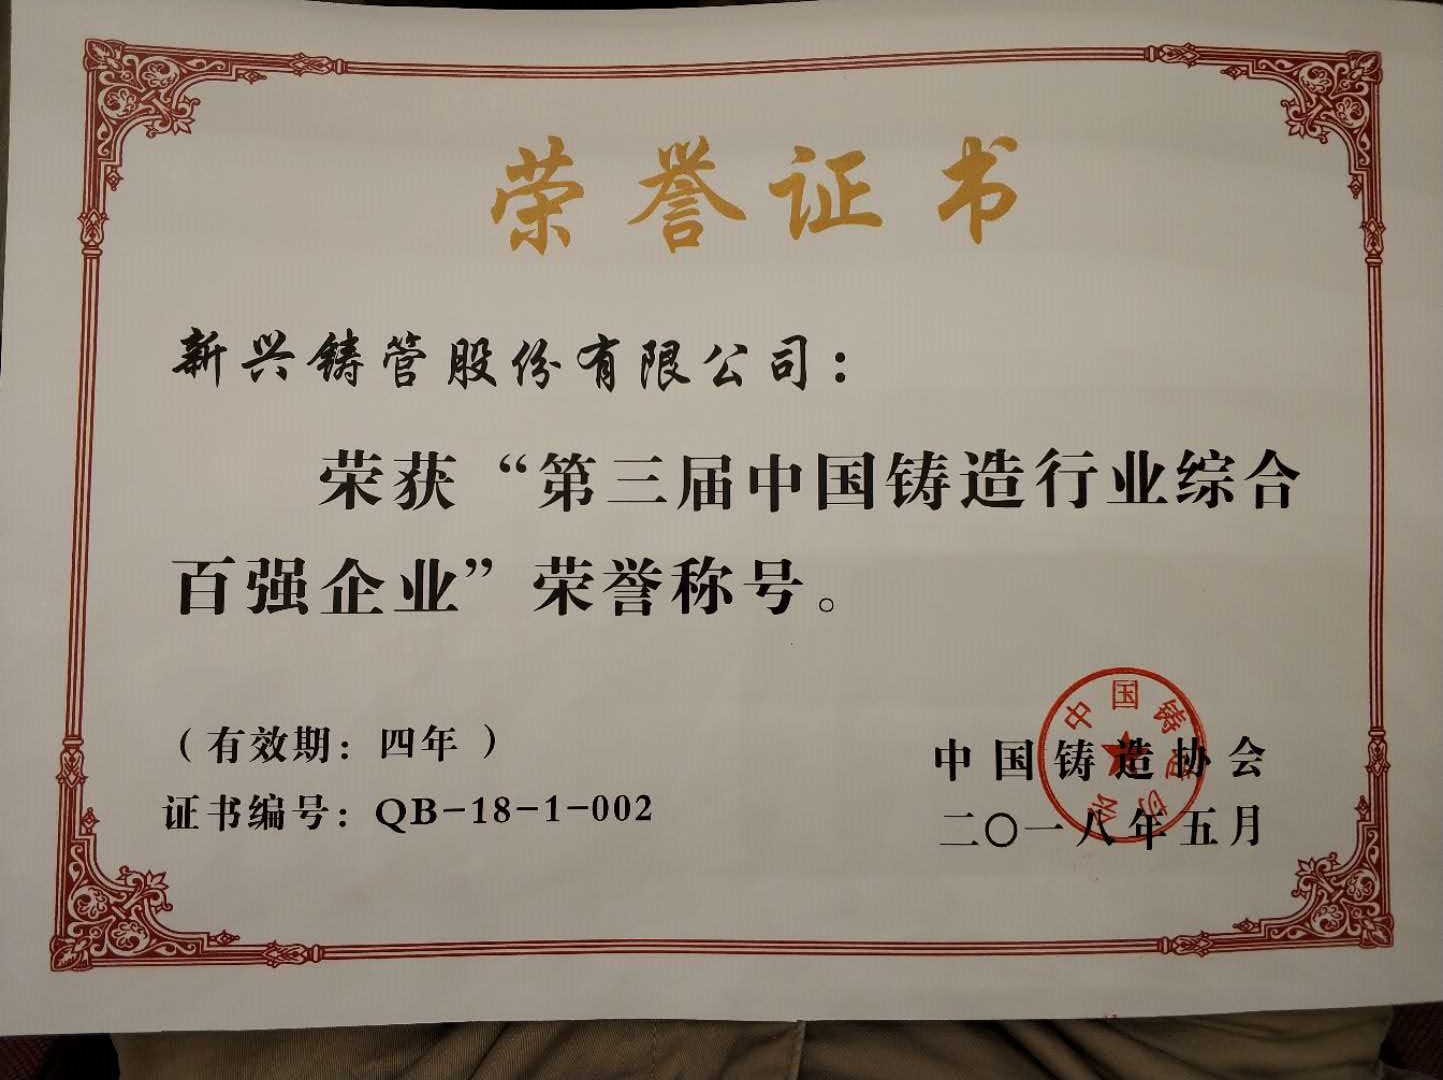 荣誉证书
新兴铸管股份有限公司：
荣获“第三届中国铸造行业综合
百强企业”荣誉称号。
（有效期：四年）
证书编号：QB-18-1-002
中国铸造协会
二〇一八年五月
中国铸造协会